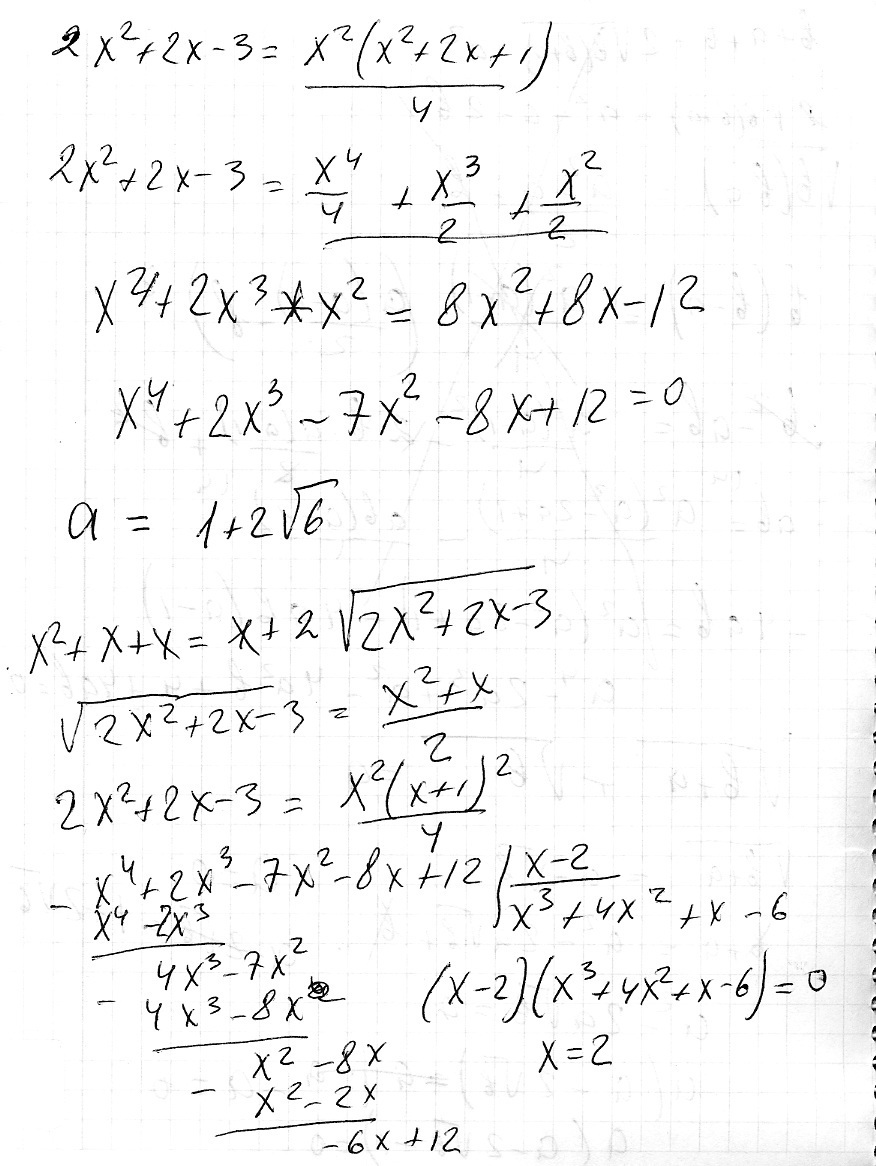 2x² + 2x - 3 = x²(x² + 2x + 1) / 4
2x² + 2x - 3 = x⁴/4 + x³/2 + x²/2
x⁴ + 2x³ + x² = 8x² + 8x - 12
x⁴ + 2x³ - 7x² - 8x + 12 = 0
a = 1 + 2√6
x² + x + x = x + 2√(2x² + 2x - 3)
√(2x² + 2x - 3) = (x² + x) / 2
2x² + 2x - 3 = x²(x + 1)² / 4
- x⁴ + 2x³ - 7x² - 8x + 12 | x - 2
x⁴ - 2x³ x³ + 4x² + x - 6
4x³ - 7x²
- 4x³ - 8x² (x - 2)(x³ + 4x² + x - 6) = 0
x² - 8x x = 2
- x² - 2x
-6x + 12